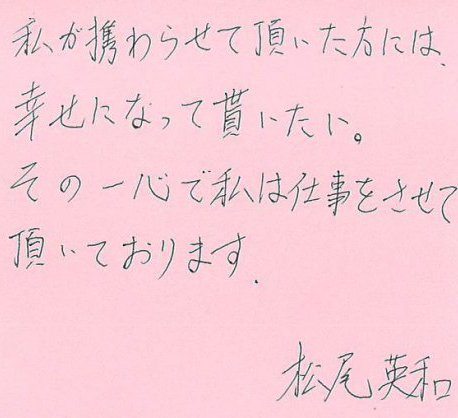 私が携わらせて頂いた方には、
幸せになって貰いたい。
その一心で私は仕事をさせて
頂いております.
松尾英和